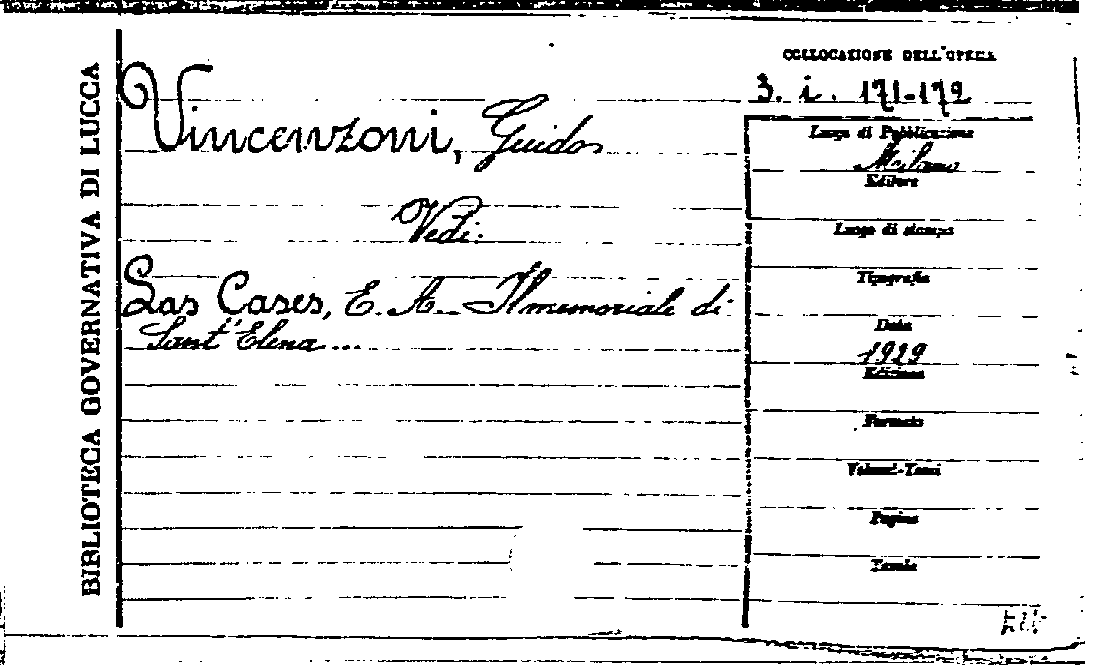 BIBLIOTECA GOVERNATIVA DI LUCCA
COLLOCAZIONE DELL'OPERA
3. i. 171-172
Vincenzoni, Guido
Vedi:
Las Cases, E. A. - Il memoriale di
Sant'Elena ...
Luogo di Pubblicazione
Milano
Editore
Luogo di stampa
Tipografia
Data
1929
Edizione
Formato
Volumi-Tomi
Pagine
Tavole